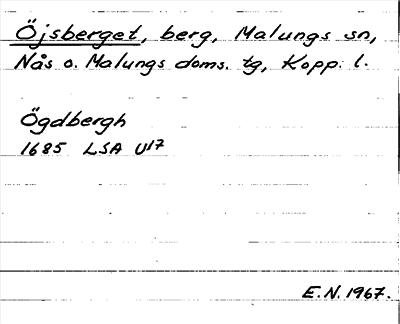 Öjsberget, berg, Malungs sn,
Nås o. Malungs doms. tg, Kopp. l.
Ögdbergh
1685 LSA U17
E.N. 1967.